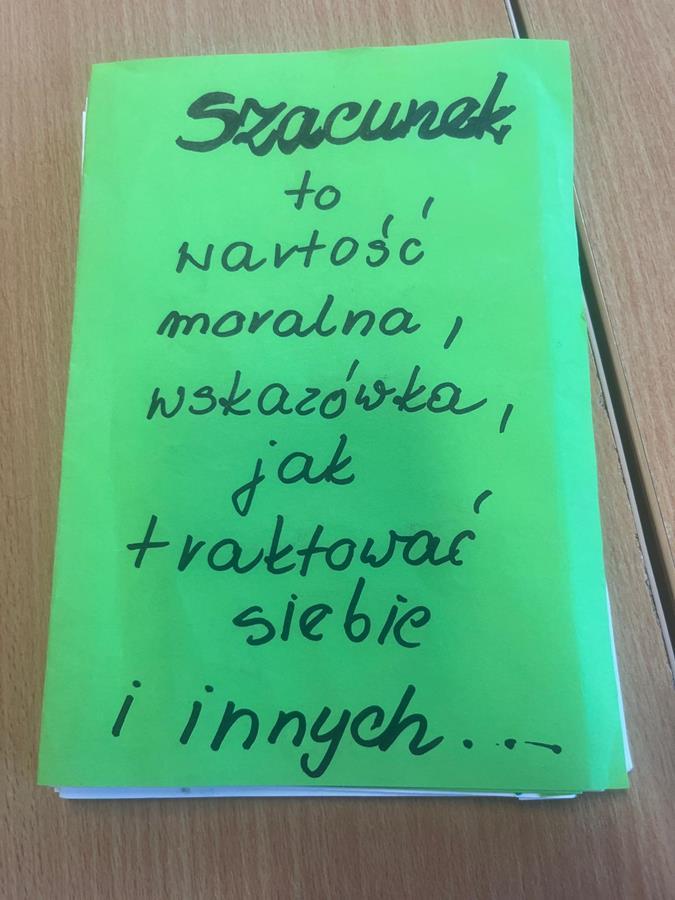 Szacunek
to
wartość
moralna,
wskazówka,
jak
traktować
siebie
i innych...